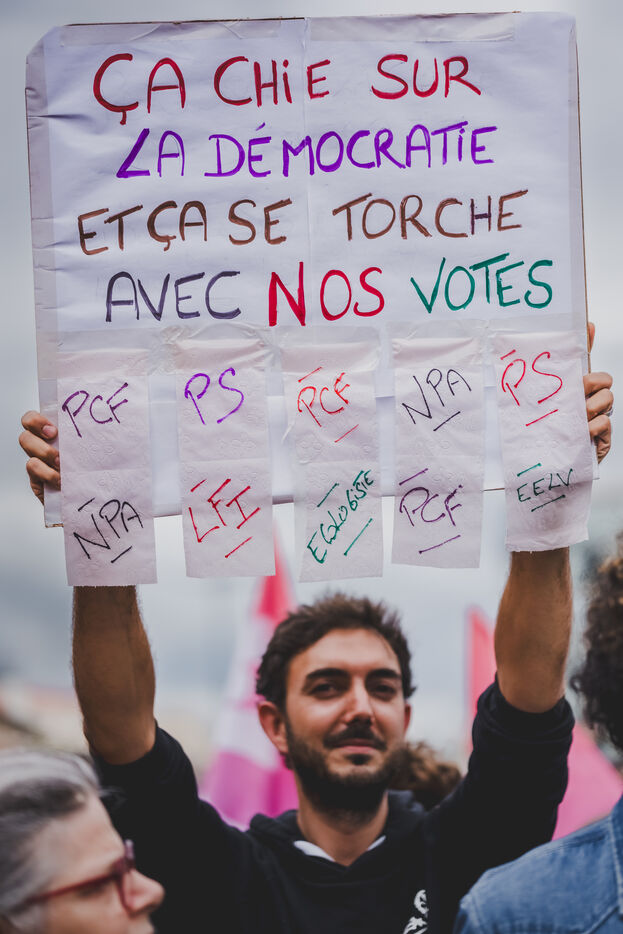 ÇA CHIE SUR
LA DÉMOCRATIE
ET ÇA SE TORCHE
AVEC NOS VOTES
PCF PS PCF NPA PS
NPA LFI ECOLOGISTE PCF EELV